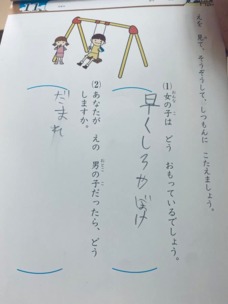 えを 見て、そうぞうして、しつもんに こたえましょう。
(1)女の子は どう おもっているでしょう。
早くしろやぼけ
(2)あなたが えの 男の子だったら、どう
しますか。
だまれ